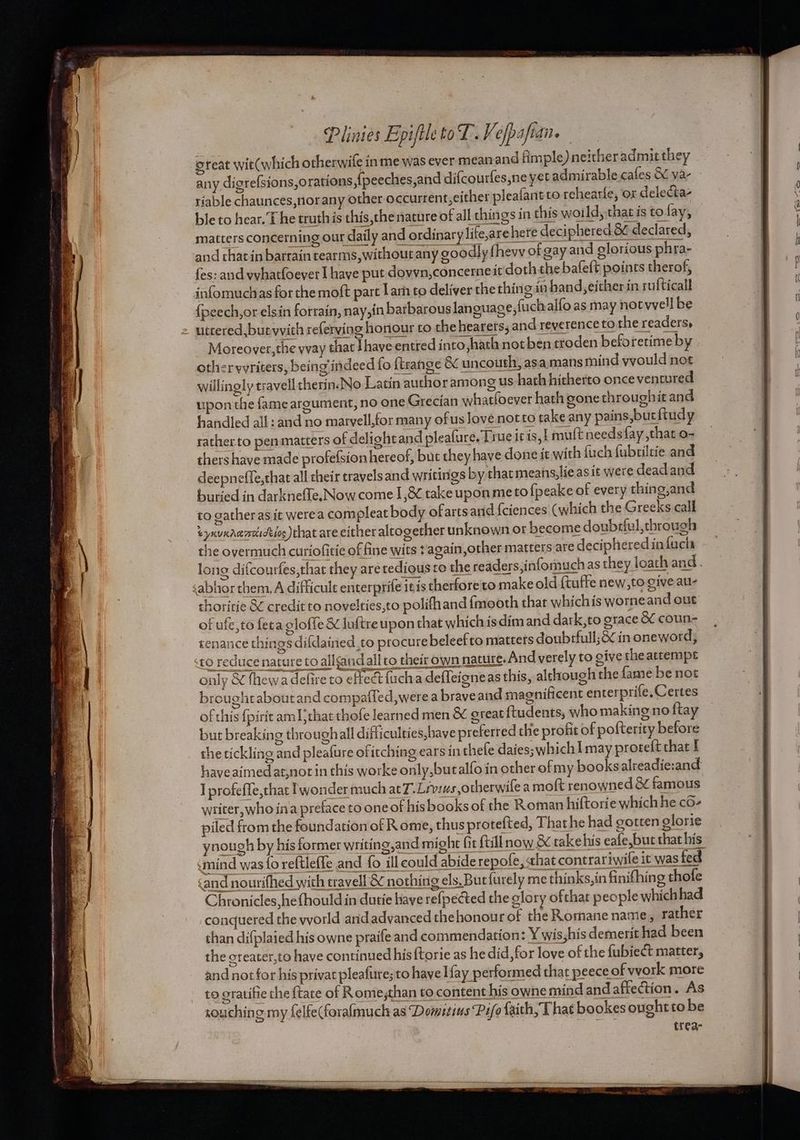 Plinies Epiſtle to T. Veſpaſian.
great wit (which otherwiſe in me was ever mean and ſimple) neither admit they
any digreſsions, orations, ſpeeches, and diſcourſes, ne yet admirable caſes & va-
riable chaunces, nor any other occurrent, either pleaſant to rehearſe, or delecta-
ble to hear. The truth is this, the nature of all things in this world, that is to ſay,
matters concerning our daily and ordinary life, are here deciphered & declared,
and that in barrain tearms, without any goodly ſhevv of gay and glorious phra-
ſes: and vvhatſoever I have put dovvn, concerne it doth the baſeſt points therof,
inſomuch as for the moſt part I am to deliver the thing in hand, either in ruſticall
ſpeech, or els in forrain, nay, in barbarous language, ſuch alſo as may not vvell be
uttered, but vvith reſerving honour to the hearers, and reverence to the readers.
Moreover, the vvay that I have entred into, hath not ben troden beforetime by
other vvriters, being indeed ſo ſtrange & uncouth, as a mans mind vvould not
willingly travell therin. No Latin author among us hath hitherto once ventured
upon the ſame argument, no one Grecian whatſoever hath gone through it and
handled all: and no marvell, for many of us love not to take any pains, but ſtudy
rather to pen matters of delight and pleaſure. True it is, I muſt needs ſay, that o-
thers have made profeſsion hereof, but they have done it with ſuch ſubtiltie and
deepneſſe, that all their travels and writings by that means, lie as it were dead and
buried in darkneſſe. Now come I, & take upon me to ſpeake of every thing, and
to gather as it were a compleat body of arts and ſciences (which the Greeks call
ἐγκυκλοπαιδείας) that are either altogether unknown or become doubtful, through
the overmuch curioſitie of fine wits: again, other matters are deciphered in ſuch
long diſcourſes, that they are tedious to the readers, inſomuch as they loath and
abhor them. A difficult enterpriſe it is therfore to make old ſtuffe new, to give au-
thoritie & credit to novelties, to poliſh and ſmooth that which is worne and out
of uſe, to ſet a gloſſe & luſtre upon that which is dim and dark, to grace & coun-
tenance things diſdained, to procure beleef to matters doubtfull; & in one word,
to reduce nature to all, and all to their own nature. And verely to give the attempt
only & ſhew a deſire to effect ſuch a deſſeigne as this, although the ſame be not
brought about and compaſſed, were a brave and magnificent enterpriſe. Certes
of this ſpirit am I, that thoſe learned men & great ſtudents, who making no ſtay
but breaking through all difficulties, have preferred the profit of poſterity before
the tickling and pleaſure of itching ears in theſe daies; which I may proteſt that I
have aimed at, not in this worke only, but alſo in other of my books alreadie: and
I profeſſe, that I wonder much at T. Livius, otherwiſe a moſt renowned & famous
writer, who in a preface to one of his books of the Roman hiſtorie which he cō-
piled from the foundation of Rome, thus proteſted, That he had gotten glorie
ynough by his former writing, and might ſit ſtill now & take his eaſe, but that his
mind was ſo reſtleſſe and ſo ill could abide repoſe, that contrariwiſe it was fed
and nouriſhed with travell & nothing els. But ſurely me thinks, in finiſhing thoſe
Chronicles, he ſhould in dutie have reſpected the glory of that people which had
conquered the vvorld and advanced the honour of the Romane name, rather
than diſplaied his owne praiſe and commendation: Ywis, his demerit had been
the greater, to have continued his ſtorie as he did, for love of the ſubiect matter,
and not for his privat pleaſure; to have I ſay performed that peece of vvork more
to gratifie the ſtate of Rome, than to content his owne mind and affection. As
touching my ſelfe (foraſmuch as Domitius Piſo ſaith, That bookes ought to be
trea-